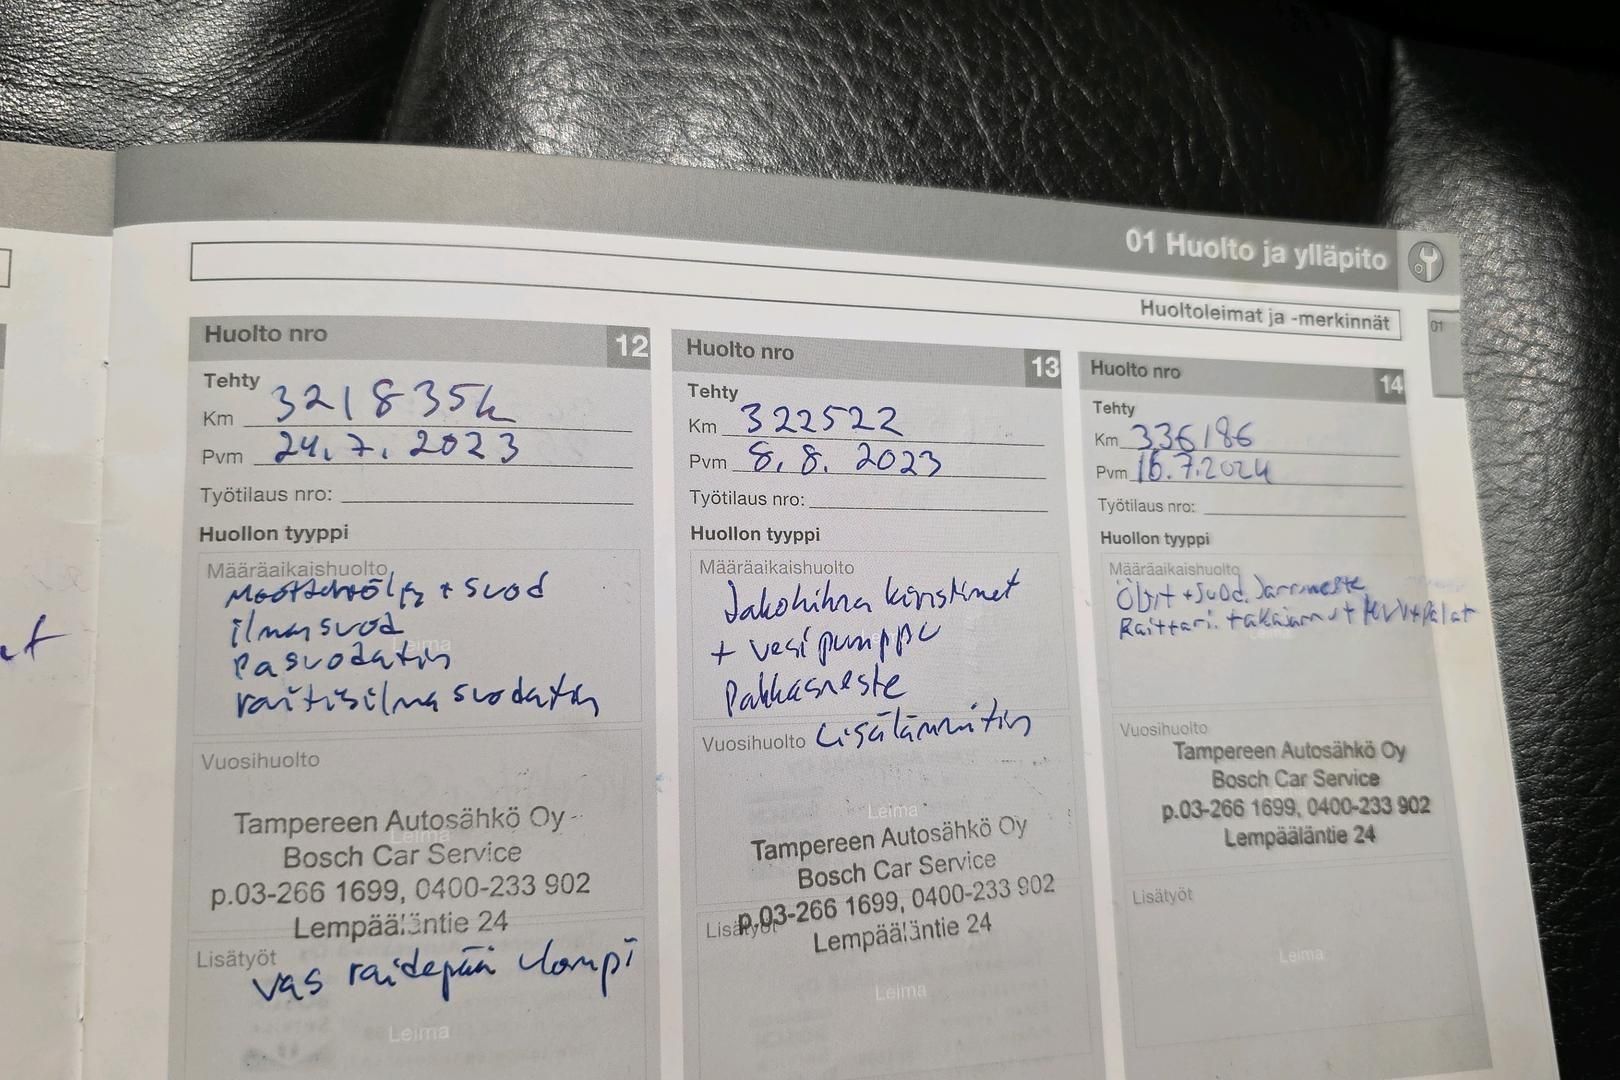 01 Huolto ja ylläpito
Huoltoleimat ja -merkinnät
01
Huolto nro 12
Tehty
Km 321835k
Pvm 24.7.2023
Työtilaus nro:
Huollon tyyppi
Määräaikaishuolto
+ suod
ilmasuod
Leima
raitisilmasuodatin
Vuosihuolto
Leima
Tampereen Autosähkö Oy
Bosch Car Service
p.03-266 1699, 0400-233 902
Lempääläntie 24
Lisätyöt
vas raidepää ulompi
Leima
Huolto nro 13
Tehty
Km 322522
Pvm 8.8. 2023
Työtilaus nro:
Huollon tyyppi
Määräaikaishuolto
Jakohihna kiristimet
+ vesipumppu
Pakkasneste
Vuosihuolto Lisälämmitin
Leima
Tampereen Autosähkö Oy
Bosch Car Service
p.03-266 1699, 0400-233 902
Lisätyöt
Lempääläntie 24
Leima
Huolto nro 14
Tehty
Km 336186
Pvm 16.7.2024
Työtilaus nro:
Huollon tyyppi
Määräaikaishuolto
Öljyt + suod. Jarruneste
Leima
Vuosihuolto
Tampereen Autosähkö Oy
Bosch Car Service
Leima
p.03-266 1699, 0400-233 902
Lempääläntie 24
Lisätyöt
Leima